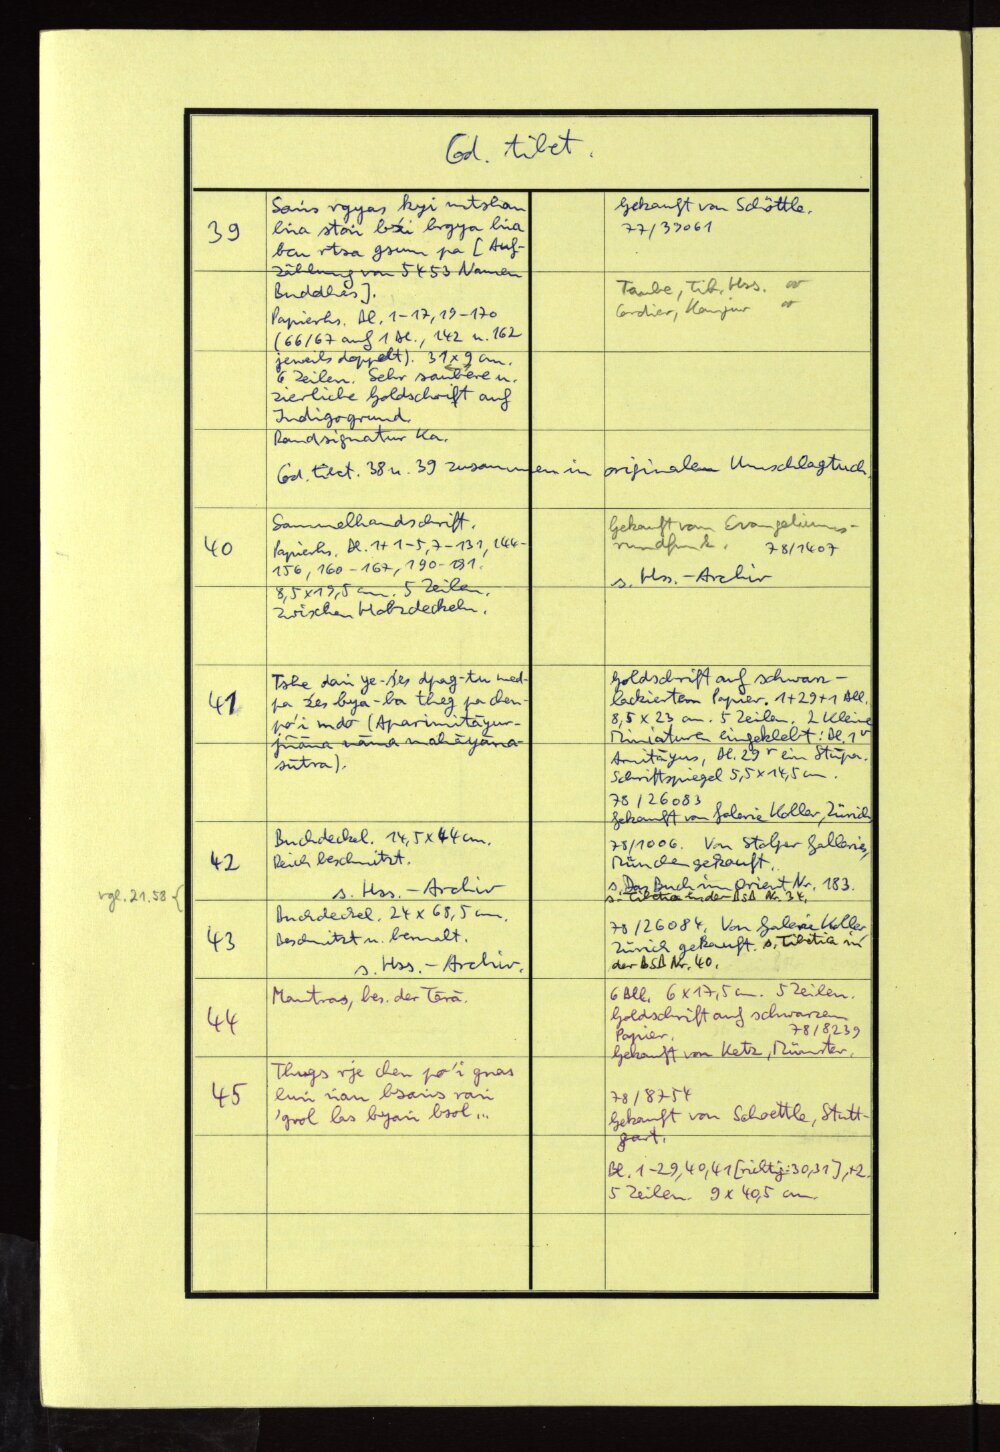 Cod. tibet.
39
Saṅs rgyas kyi mtshan
lṅa stoṅ bźi brgya lṅa
bcu rtsa gsum pa [Auf-
zählung von 5453 Namen
Buddhas].
Papierhs. Bl. 1-17, 19-170
(66/67 auf 1 Bl., 142 u. 162
jeweils doppelt). 31 x 9 cm.
6 Zeilen. Sehr saubere u.
zierliche Goldschrift auf
Indigogrund.
Randsignatur Ka.
Gekauft von Schöttle.
77/39061
Taube, Tib. Hss. ∅
Cordier, Kanjur ∅
Cod. tibet. 38 u. 39 zusammen in originalem Umschlagtuch.
40
Sammelhandschrift.
Papierhs. Bl. 1+1-5, 7-131, 144-
156, 160-167, 190-191.
8,5 x 19,5 cm. 5 Zeilen.
Zwischen Holzdeckeln.
Gekauft vom Evangeliums-
rundfunk. 78/1407
s. Hss.-Archiv
41
Tshe daṅ ye-śes dpag-tu med-
pa źes bya-ba theg pa chen-
po'i mdo (Aparimitāyur-
jñāna nāma mahāyāna-
sūtra).
Goldschrift auf schwarz-
lackiertem Papier. 1+29+1 Bll.
8,5 x 23 cm. 5 Zeilen. 2 kleine
Miniaturen eingeklebt: Bl. 1v
Amitāyus, Bl. 29v ein Stūpa.
Schriftspiegel 5,5 x 14,5 cm.
78/26083
Gekauft von Galerie Koller, Zürich
42
Buchdeckel. 14,5 x 44 cm.
Reich beschnitzt.
s. Hss.-Archiv
78/1006. Von Stolper Galleries,
München gekauft.
s. Das Buch im Orient Nr. 183.
s. Tibetica in der BSB Nr. 34.
vgl. 21.58 {
43
Buchdeckel. 24 x 68,5 cm.
Beschnitzt u. bemalt.
s. Hss.-Archiv.
78/26084. Von Galerie Koller
Zürich gekauft. s. Tibetica in
der BSB Nr. 40.
44
Mantras, bes. der Tārā.
6 Bll. 6 x 17,5 cm. 5 Zeilen.
Goldschrift auf schwarzem
Papier. 78/8239
Gekauft von Ketz, Münster.
45
Thugs rje chen po'i gnas
luṅ ṅan bsaṅs raṅ
'grol las byaṅ bsol...
78/8754
Gekauft von Schoettle, Stutt-
gart.
Bl. 1-29, 40, 41 [richtig: 30, 31], +2.
5 Zeilen. 9 x 40,5 cm.